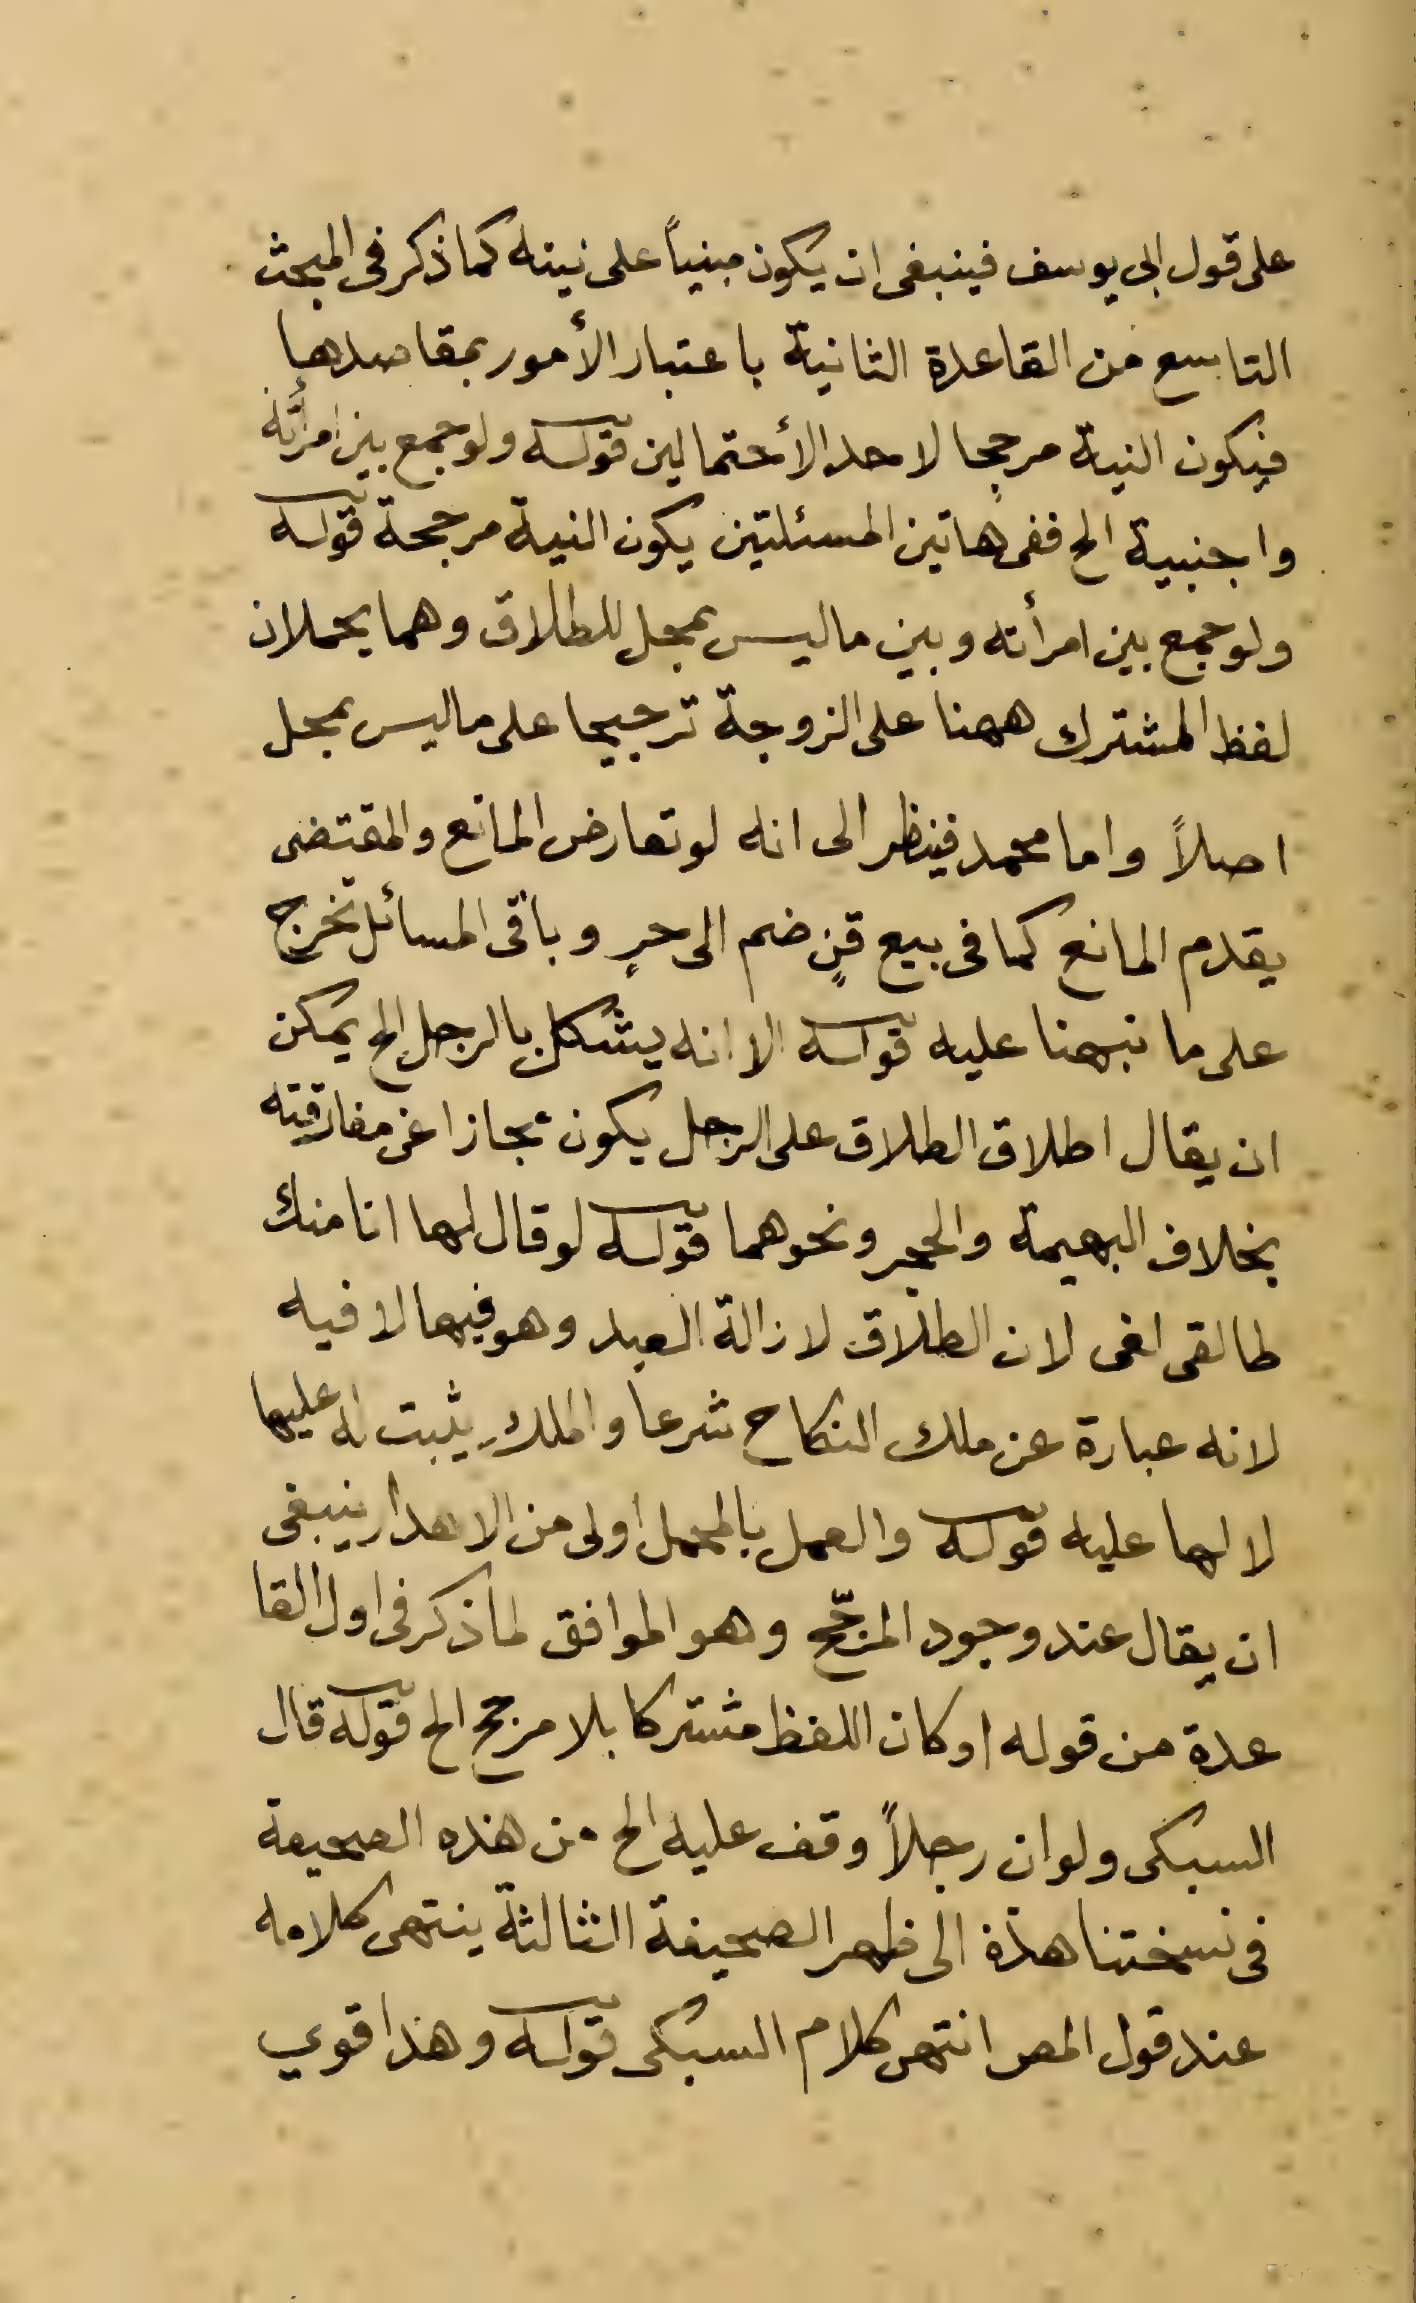 على قول ابى يوسف فينبغى ان يكون مبنياً على نيته كما ذكر فى المبحث
التاسع من القاعدة الثانية باعتبار الأمور بمقاصدها
فيكون النية مرجحا لاحد الأحتمالين قوله ولو جمع بين امرأته
واجنبية الخ ففى هاتين المسئلتين يكون النية مرجحة قوله
ولو جمع بين امرأته وبين ما ليس بمحل للطلاق وهما يحملان
لفظ المشترك ههنا على الزوجة ترجيحا على ما ليس بمحل
اصلاً واما محمد فينظر الى انه لو تعارض المانع والمقتضى
يقدم المانع كما فى بيع قنٍ ضم الى حرٍ وباقى المسائل تخرج
على ما نبهنا عليه قوله الا انه يشكل بالرجل الخ يمكن
ان يقال اطلاق الطلاق على الرجل يكون مجازا عن مفارقته
بخلاف البهيمة والحجر ونحوهما قوله لو قال لها انا منك
طالق لغى لان الطلاق لازالة القيد وهو فيها لا فيه
لانه عبارة عن ملك النكاح شرعا والملك يثبت له عليها
لا لها عليه قوله والعمل بالمحمل اولى من الاهدار ينبغى
ان يقال عند وجود المرجّح وهو الموافق لما ذكر فى اول القا
عدة من قوله او كان اللفظ مشتركا بلا مرجح الخ قوله قال
السبكى ولو ان رجلاً وقف عليه الخ من هذه الصحيفة
فى نسختنا هذة الى ظهر الصحيفة الثالثة ينتهى كلامه
عند قول المص انتهى كلام السبكى قوله وهذا قوي